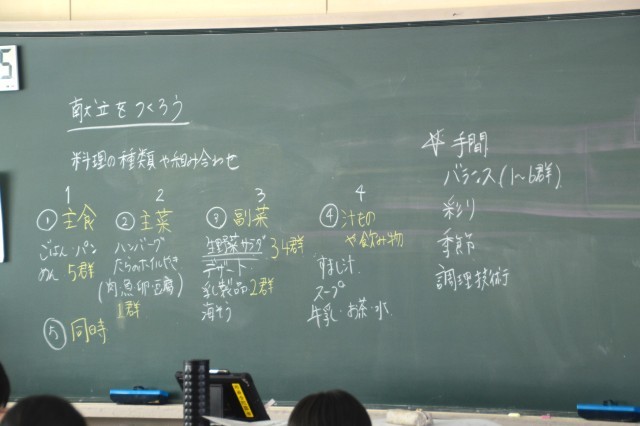 献立をつくろう
料理の種類や組み合わせ
1 2 3 4
① 主食
ごはん・パン
めん 5群
② 主菜
ハンバーグ
たらのホイルやき
(肉・魚・卵・豆腐)
1群
③ 副菜
野菜サラダ 3 4群
デザート
乳製品 2群
海そう
④ 汁もの
や飲み物
すまし汁
スープ
牛乳・お茶・水
⑤ 同時
手間
バランス(1〜6群)
彩り
季節
調理技術
5